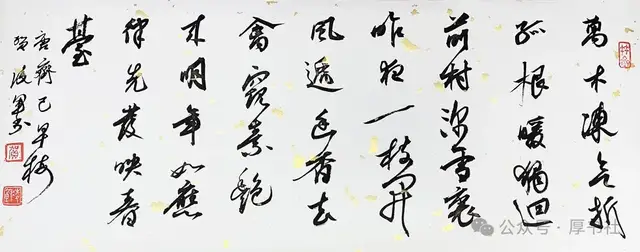 萬木凍欲折
孤根暖獨迴
前村深雪裏
昨夜一枝開
風遞幽香去
禽窺素艷
來明年如應
律先發映春
臺
唐齊己早梅
公众号·厚书社